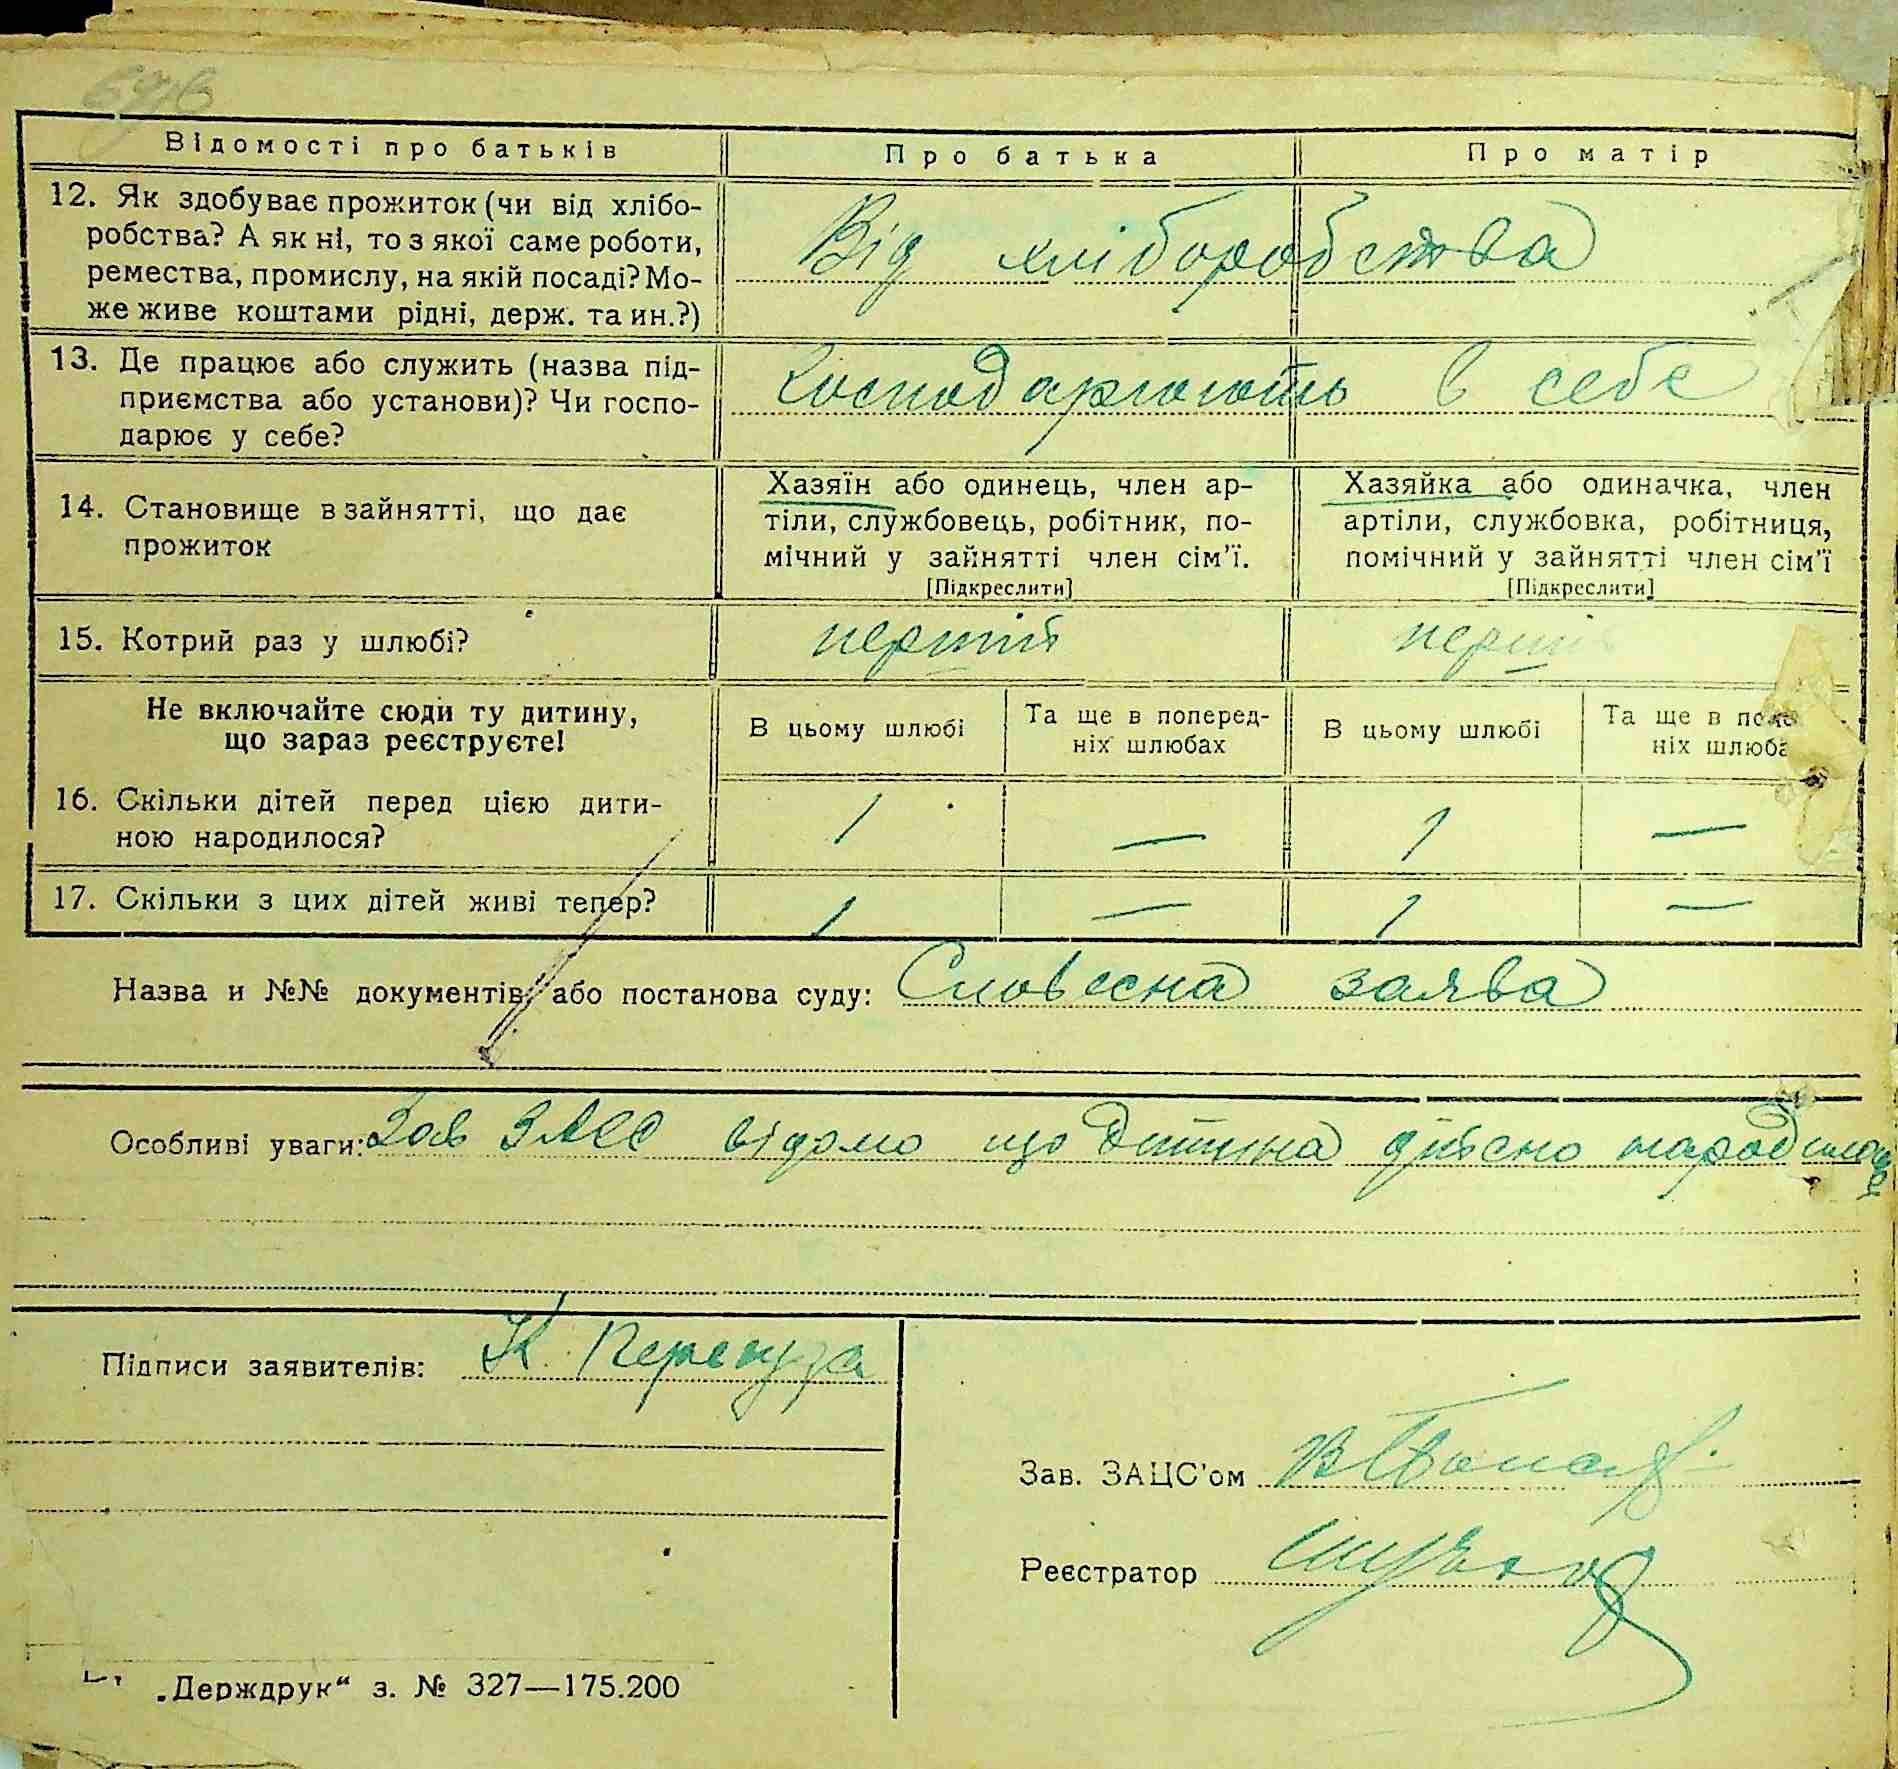 Відомості про батьків Про батька Про матір
12. Як здобуває прожиток (чи від хлібо-
робства? А як ні, то з якої саме роботи,
ремества, промислу, на якій посаді? Мо-
же живе коштами рідні, держ. та ин.?)
Від хліборобства
13. Де працює або служить (назва під-
приємства або установи)? Чи госпо-
дарює у себе?
Господарюють в себе
14. Становище в зайнятті, що дає
прожиток
Хазяїн або одинець, член ар-
тіли, службовець, робітник, по-
мічний у зайнятті член сім'ї.
[Підкреслити]
Хазяйка або одиначка, член
артіли, службовка, робітниця,
помічний у зайнятті член сім'ї
[Підкреслити]
15. Котрий раз у шлюбі? перший перший
Не включайте сюди ту дитину,
що зараз реєструєте!
В цьому шлюбі
Та ще в поперед-
ніх шлюбах
В цьому шлюбі
Та ще в
ніх
16. Скільки дітей перед цією дити-
ною народилося?
1 — 1 —
17. Скільки з цих дітей живі тепер? 1 — 1 —
Назва и №№ документів або постанова суду: Словесна заява
Особливі уваги: Зав ЗАГС відомо що дитина дійсно народилась
Підписи заявителів: К.
Зав. ЗАЦС'ом
Реєстратор
„Держдрук“ з. № 327—175.200